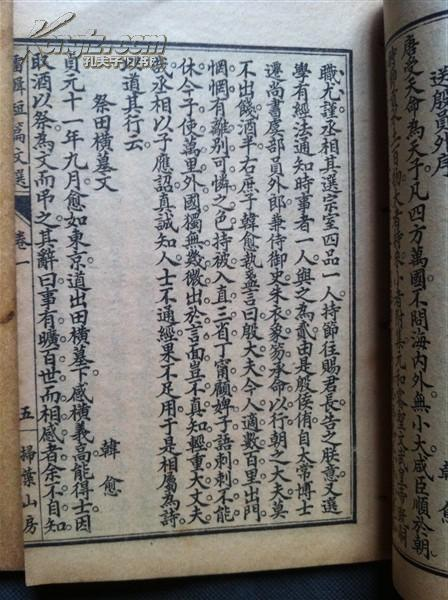 唐受天命為天子凡四方萬國不問海內外無小大咸臣順於朝
職尤謹丞相其選宗室四品一人持節往賜君長告之朕意又選
學有經法通知時事者一人與之為貳由是殷侯侑自太常博士
遷尚書虞部員外郎兼侍御史朱衣象笏承命以行朝之大夫莫
不出餞酒半右庶子韓愈執盞言曰殷大夫今人適數百里出門
惘惘有離別可憐之色持被入直三省丁甯顧婢子語刺刺不能
休今子使萬里外國獨無幾微出於言面豈不真知輕重大丈夫
哉丞相以子應詔真誠知人士不通經果不足用于是相屬為詩
以道其行云
祭田橫墓文
韓愈
貞元十一年九月愈如東京道出田橫墓下感橫義高能得士因
取酒以祭為文而弔之其辭曰事有曠百世而相感者余不自知
短篇文選 卷一 五 掃葉山房
孔夫子旧书网